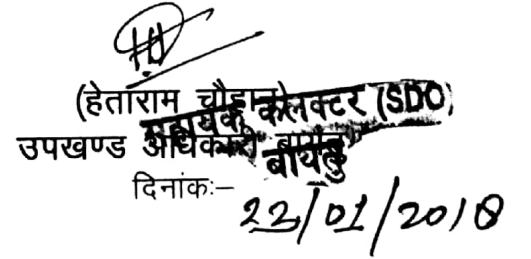 (हेताराम चौहान)
सहायक कलक्टर (SDO)
उपखण्ड अधिकारी बायतु
बायतु
दिनांकः–
22/01/2018